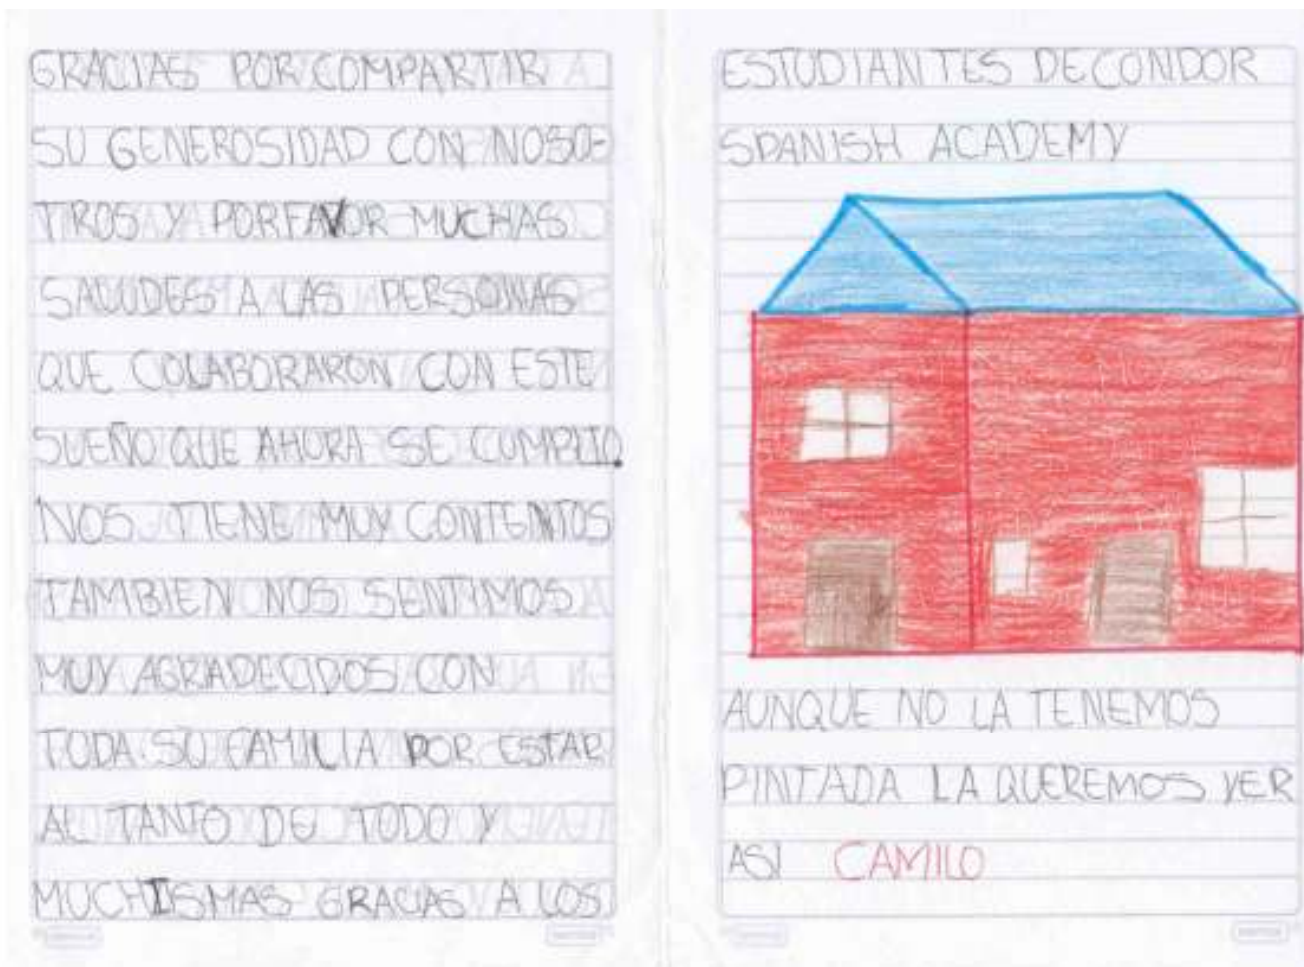 GRACIAS POR COMPARTIR
SU GENEROSIDAD CON NOSO-
TROS Y PORFAVOR MUCHAS
SALUDES A LAS PERSONAS
QUE COLABORARON CON ESTE
SUEÑO QUE AHORA SE CUMPLIO.
NOS TIENE MUY CONTENTOS
TAMBIEN NOS SENTIMOS
MUY AGRADECIDOS CON
TODA SU FAMILIA POR ESTAR
AL TANTO DE TODO Y
MUCHISMAS GRACIAS A LOS
ESTUDIANTES DE CONDOR
SPANISH ACADEMY
AUNQUE NO LA TENEMOS
PINTADA LA QUEREMOS VER
ASI CAMILO